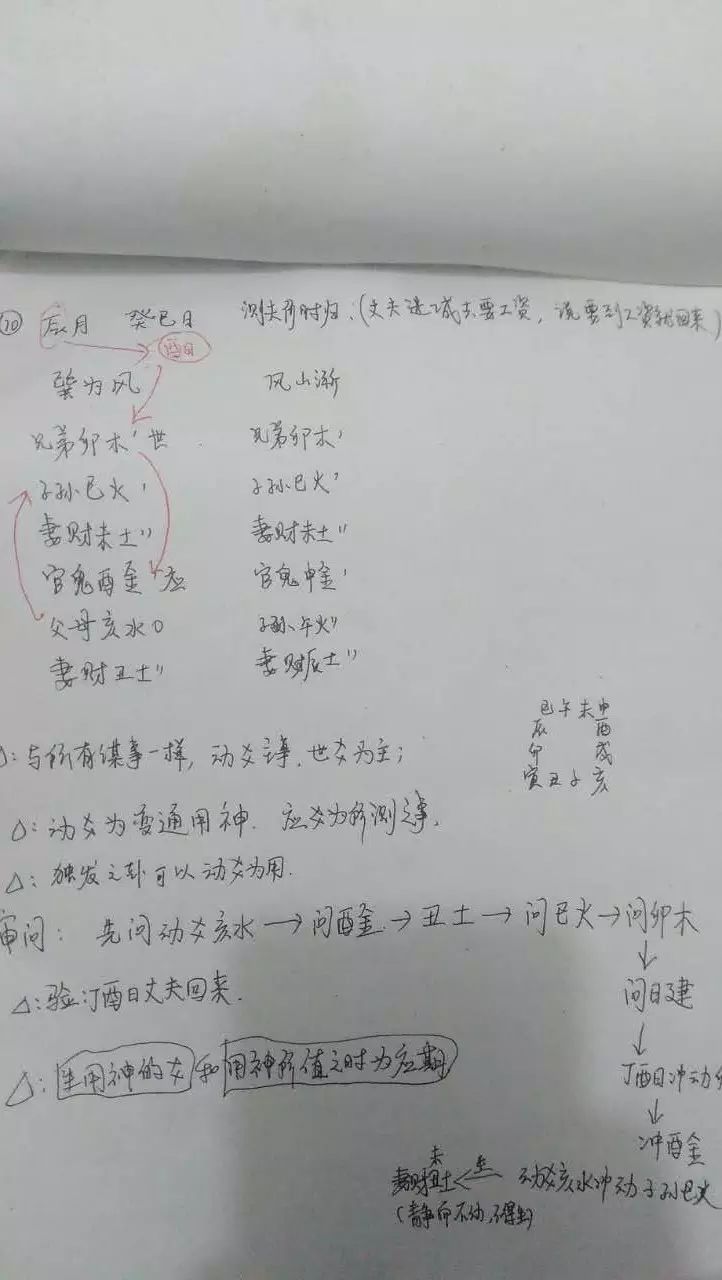 ⑳ 辰月 癸巳日 测夫何时归:(丈夫进城去要工资,说要到工资就回来)
酉日
巽为风 风山渐
兄弟卯木' 世 兄弟卯木'
子孙巳火' 子孙巳火'
妻财未土" 妻财未土"
官鬼酉金' 应 官鬼申金'
父母亥水O 子孙午火"
妻财丑土" 妻财辰土"
巳午未申
辰 酉
卯 戌
寅丑子亥
△:与所有谋事一样,动爻主事,世爻为主;
△:动爻为变通用神.应爻为所测之事.
△:独发之卦可以动爻为用.
审问:先问动爻亥水→问酉金→丑土→问巳火→问卯木
↓
问日建
△:验:丁酉日丈夫回来.
↓
丁酉日冲动
△:生用神的爻和用神所值之时为应期
↓
冲酉金
未
妻财丑土 ← 生 动爻亥水冲动子孙巳火
(静而不动,不得生)